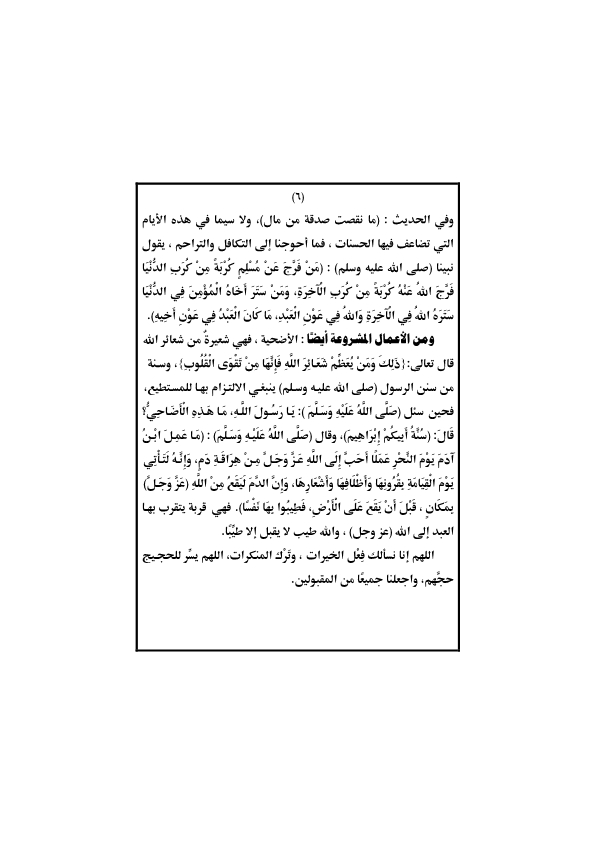 (٦)
وفي الحديث : (ما نقصت صدقة من مال)، ولا سيما في هذه الأيام
التي تضاعف فيها الحسنات ، فما أحوجنا إلى التكافل والتراحم ، يقول
نبينا (صلى الله عليه وسلم) : (مَنْ فَرَّجَ عَنْ مُسْلِمٍ كُرْبَةً مِنْ كُرَبِ الدُّنْيَا
فَرَّجَ اللهُ عَنْهُ كُرْبَةً مِنْ كُرَبِ الْآخِرَةِ، وَمَنْ سَتَرَ أَخَاهُ الْمُؤْمِنَ فِي الدُّنْيَا
سَتَرَهُ اللهُ فِي الْآخِرَةِ وَاللهُ فِي عَوْنِ الْعَبْدِ، مَا كَانَ الْعَبْدُ فِي عَوْنِ أَخِيهِ).
ومن الأعمال المشروعة أيضًا : الأضحية ، فهي شعيرةٌ من شعائر الله
قال تعالى: {ذَلِكَ وَمَنْ يُعَظِّمْ شَعَائِرَ اللَّهِ فَإِنَّهَا مِنْ تَقْوَى الْقُلُوبِ} ، وسنة
من سنن الرسول (صلى الله عليه وسلم) ينبغي الالتزام بها للمستطيع،
فحين سئل (صَلَّى اللَّهُ عَلَيْهِ وَسَلَّمَ ): يَا رَسُولَ اللَّهِ، مَا هَذِهِ الْأَضَاحِيُّ؟
قَالَ: (سُنَّةُ أَبِيكُمْ إِبْرَاهِيمَ)، وقال (صَلَّى اللَّهُ عَلَيْهِ وَسَلَّمَ) : (مَا عَمِلَ ابْنُ
آدَمَ يَوْمَ النَّحْرِ عَمَلًا أَحَبَّ إِلَى اللَّهِ عَزَّ وَجَلَّ مِنْ هِرَاقَةِ دَمٍ، وَإِنَّهُ لَتَأْتِي
يَوْمَ الْقِيَامَةِ بِقُرُونِهَا وَأَظْلَافِهَا وَأَشْعَارِهَا، وَإِنَّ الدَّمَ لَيَقَعُ مِنْ اللَّهِ (عَزَّ وَجَلَّ)
بِمَكَانٍ ، قَبْلَ أَنْ يَقَعَ عَلَى الْأَرْضِ، فَطِيبُوا بِهَا نَفْسًا). فهي قربة يتقرب بها
العبد إلى الله (عز وجل) ، والله طيب لا يقبل إلا طيِّبًا.
اللهم إنا نسألك فِعْل الخيرات ، وتَرْك المنكرات، اللهم يسِّر للحجيج
حجَّهم، واجعلنا جميعًا من المقبولين.